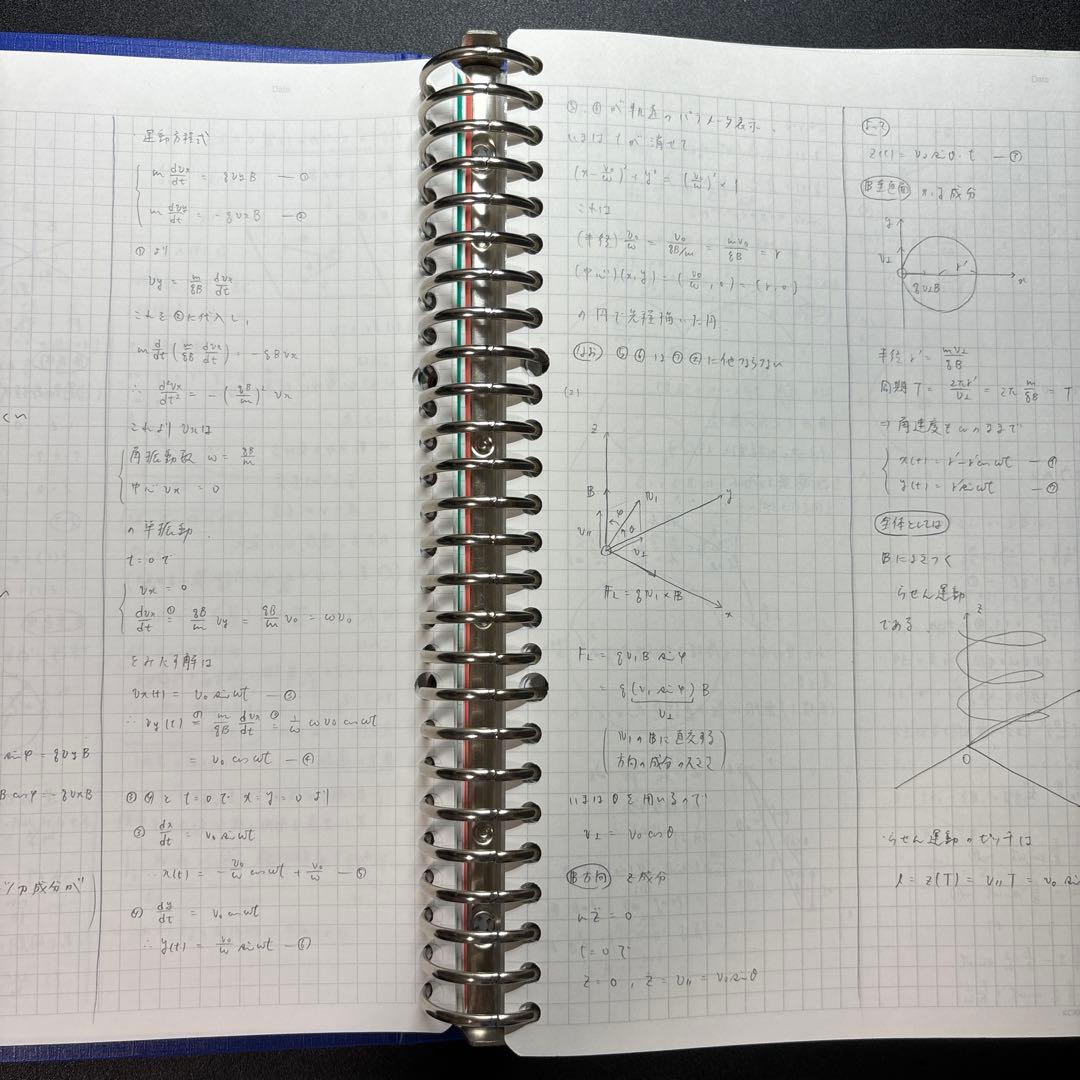 Date
くい
sinφ = qvyB
B cosφ = -qvxB
成分が
運動方程式
m dvx/dt = qvyB — ①
m dvy/dt = -qvxB — ②
①より
vy = m/qB dvx/dt
これを②に代入し,
m d/dt (m/qB dvx/dt) = -qBvx
∴ d²vx/dt² = -(qB/m)² vx
これより vxは
角振動数 ω = qB/m
中心 vx = 0
の単振動.
t=0で
vx = 0
dvx/dt ①= qB/m vy = qB/m v0 = ωv0
をみたす解は
vx(t) = v0 sinωt — ③
∴ vy(t) ①= m/qB dvx/dt ③= 1/ω ωv0 cosωt
= v0 cosωt — ④
③④と t=0で x=y=0 より
③ dx/dt = v0 sinωt
x(t) = -v0/ω cosωt + v0/ω — ⑤
④ dy/dt = v0 cosωt
∴ y(t) = v0/ω sinωt — ⑥
⑤,⑥が軌道のパラメータ表示.
いまはtが消せて
(x - v0/ω)² + y² = (v0/ω)² × 1
これは
(半径) v0/ω = v0/qB/m = mv0/qB = r
(中心) (x,y) = (v0/ω, 0) = (r, 0)
の円で先程描いた円
(なお) ⑤⑥は⑦⑧に他ならない
(2)
z
B
v//
φ
v1
θ
v⊥
y
x
FL = qv1×B
FL = qv1B sinφ
= q(v1 sinφ)B
v⊥
(v1のBに直交する
方向の成分の大きさ)
いまはθを用いるので
v⊥ = v0 cosθ
B方向 z成分
mz̈ = 0
t=0で
z=0, ż = v// = v0 sinθ
Date
よって
z(t) = v0 sinθ·t — ⑦
B垂直面 x,y成分
y
v⊥
r'
x
qv⊥B
半径 r' = mv⊥/qB
周期 T = 2πr'/v⊥ = 2π m/qB = T
⇒ 角速度もωのままで
x(t) = r' - r'cosωt — ⑧
y(t) = r'sinωt — ⑨
全体としては
Bにまきつく
らせん運動
である
z
0
らせん運動のピッチは
l = z(T) = v//T = v0 si